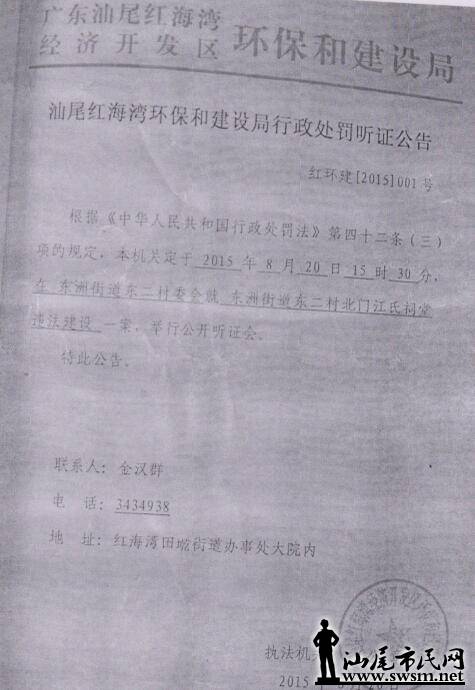 广东汕尾红海湾
经济开发区 环保和建设局
汕尾红海湾环保和建设局行政处罚听证公告
红环建[2015]001号
根据《中华人民共和国行政处罚法》第四十二条（三）
项的规定，本机关定于 2015 年 8 月 20 日 15 时 30 分，
在 东洲街道东二村委会就 东洲街道东二村北门江氏祠堂
违法建设 一案，举行公开听证会。
特此公告。
联系人：金汉群
电 话：3434938
地 址：红海湾田墘街道办事处大院内
执法机
2015
汕尾市民网
www.swsm.net